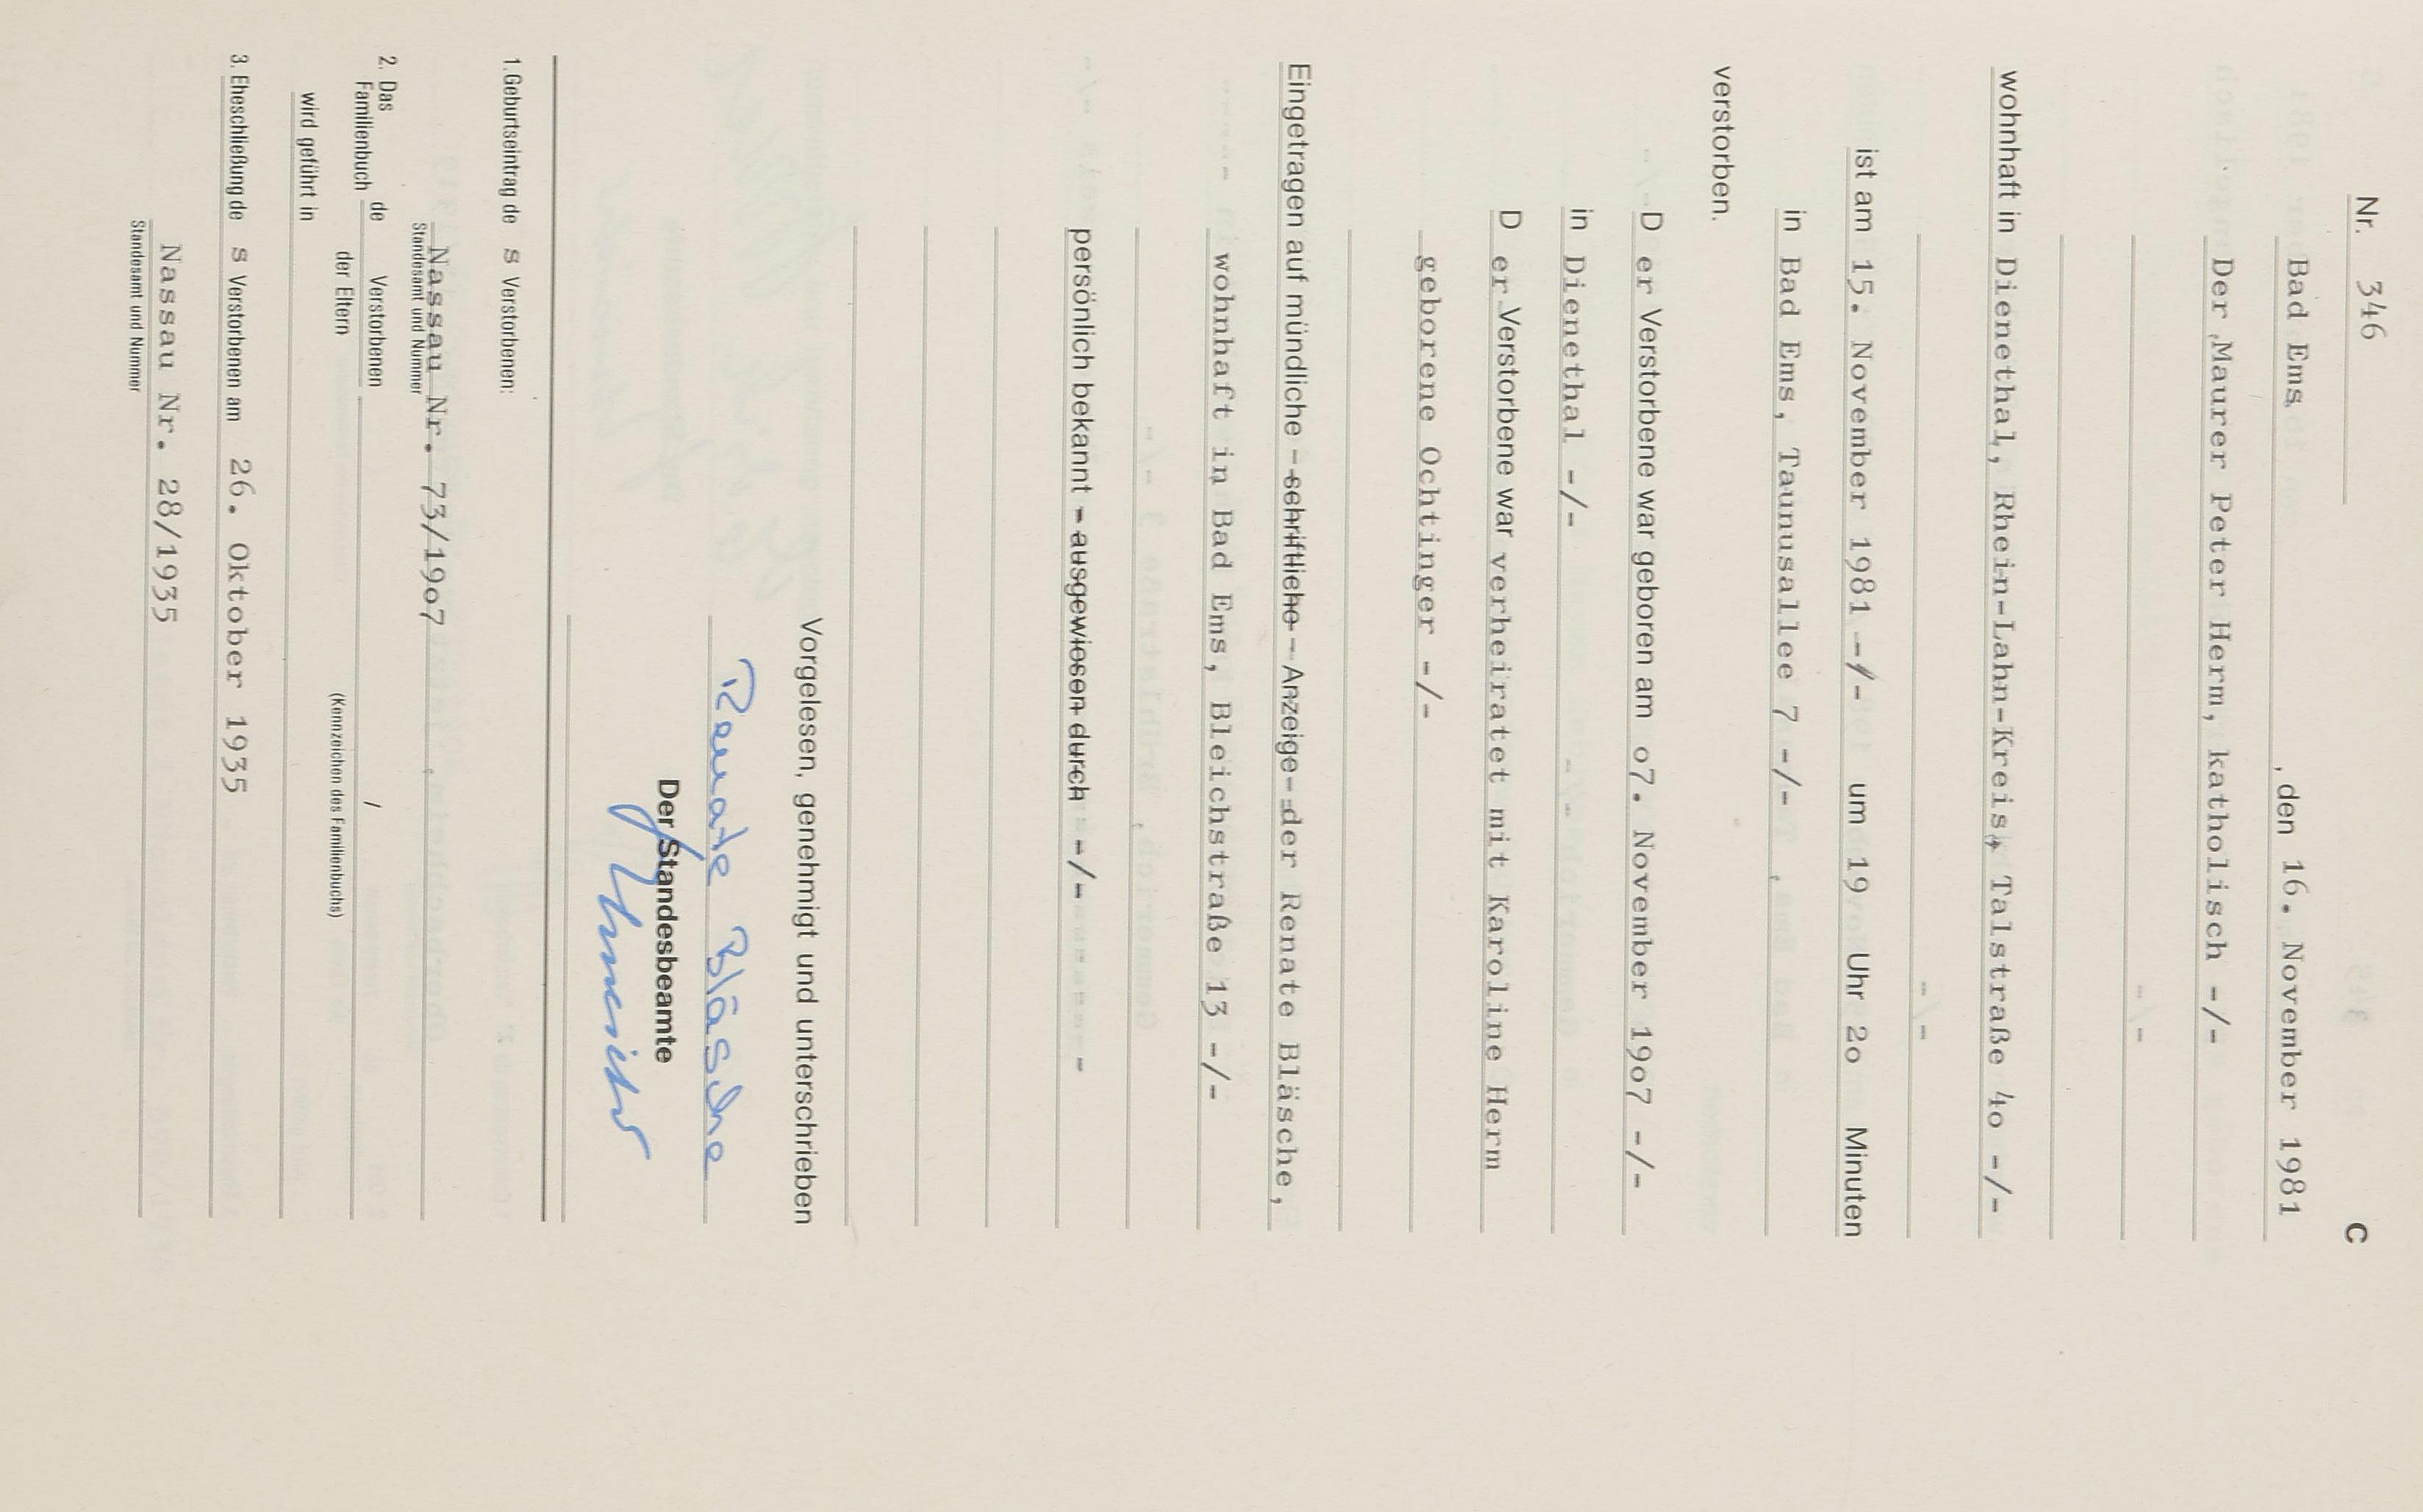 Nr. 346 C
Bad Ems, den 16. November 1981
Der Maurer Peter Herm, katholisch -/-
-/-
wohnhaft in Dienethal, Rhein-Lahn-Kreis, Talstraße 4o -/-
-/-
ist am 15. November 1981 -/- um 19 Uhr 2o Minuten
in Bad Ems, Taunusallee 7 -/-
verstorben.
D er Verstorbene war geboren am o7. November 19o7 -/-
in Dienethal -/-
D er Verstorbene war verheiratet mit Karoline Herm
geborene Ochtinger -/-
Eingetragen auf mündliche – schriftliche – Anzeige – der Renate Bläsche,
wohnhaft in Bad Ems, Bleichstraße 13 -/-
persönlich bekannt – ausgewiesen durch -/- -
Vorgelesen, genehmigt und unterschrieben
Renate Bläsche
Der Standesbeamte
1. Geburtseintrag de s Verstorbenen:
Nassau Nr. 73/19o7
Standesamt und Nummer
2. Das Familienbuch de Verstorbenen /
der Eltern (Kennzeichen des Familienbuchs)
wird geführt in
3. Eheschließung de s Verstorbenen am 26. Oktober 1935
Nassau Nr. 28/1935
Standesamt und Nummer